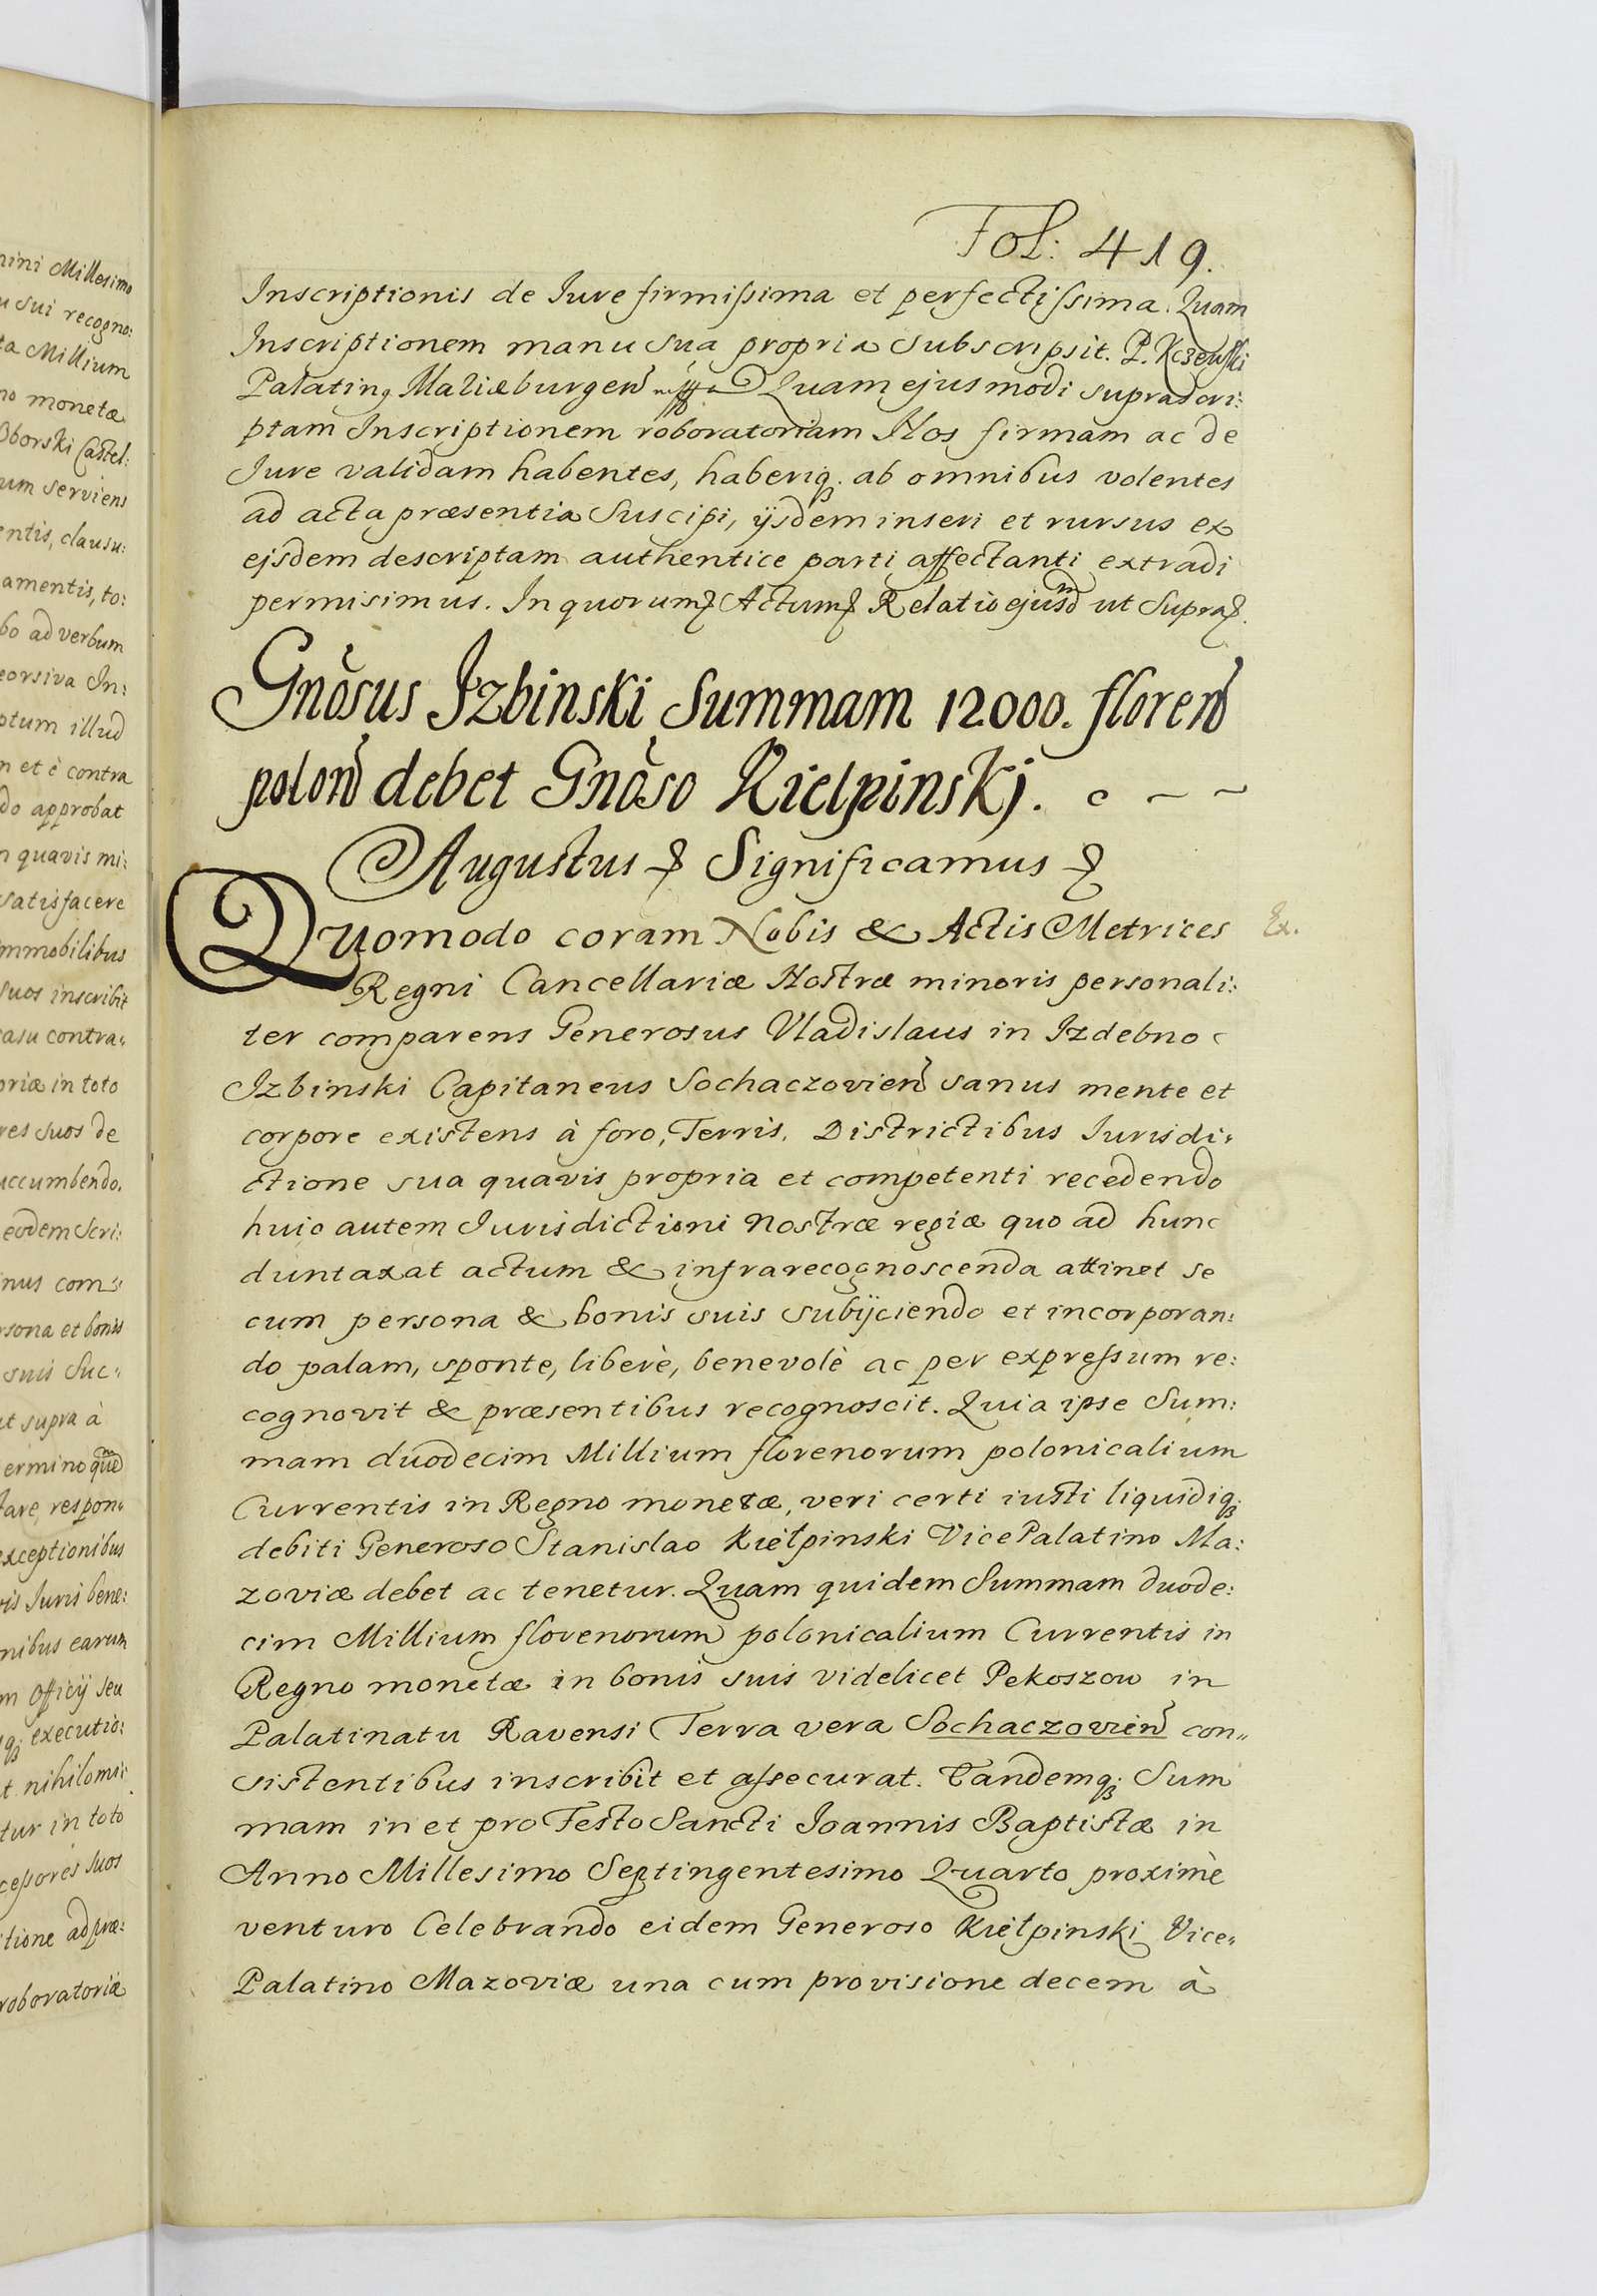 nini Millesimo
u sui recogno:
ta Millium
no monetæ
Oborski Castel:
um serviens
entis, clausu:
amentis, to:
bo ad verbum
eorsiva In:
ptum illud
n et è contra
do approbat
n quavis mi:
satisfacere
mmobilibus
suos inscribit
casu contra:
oriæ in toto
res suos de
uccumbendo.
eodem Scri:
nus com:
rsona et bonis
suis Suc:
ut supra à
ermino
tare, respon:
exceptionibus
vis Juris bene:
nibus earum
m Officij seu
q3 executio:
t nihilomi:
tur in toto
cessores suos
itione ad præ:
roboratoriæ
Fol: 419.
Inscriptionis de Iure firmissima et perfectissima. Quam
Inscriptionem manu sua propria subscripsit. P. Kczewski
Palatinꝯ Mariæburgen̄ Quam ejusmodi suprascri:
ptam Inscriptionem roboratoriam Nos firmam ac de
Iure validam habentes, haberiq3. ab omnibus volentes
ad acta præsentia Suscipi, ijsdem inseri et rursus ex
ejsdem descriptam authentice parti affectanti extradi
permisimus. In quorum Actum Relatio ejusdm ut Supra.
Gnosus Izbinski Summam 12000. floren̄
polon̄ debet Gnoso Kielpinskj.
Augustus Significamus
Quomodo coram Nobis & Actis Metrices
Ex.
Regni Cancellariæ Nostræ minoris personali:
ter comparens Generosus Vladislaus in Izdebno
Izbinski Capitaneus Sochaczovien̄ sanus mente et
corpore existens à foro, Terris, Districtibus Iurisdi:
ctione sua quavis propria et competenti recedendo
huic autem Iurisdictioni nostræ regiæ quo ad hunc
duntaxat actum & infrarecognoscenda attinet se
cum persona & bonis suis subijciendo et incorporan:
do palam, sponte, liberè, benevolè ac per expressum re:
cognovit & præsentibus recognoscit. Quia ipse Sum:
mam duodecim Millium florenorum polonicalium
Currentis in Regno monetæ, veri certi iusti liquidiq3
debiti Generoso Stanislao Kiełpinski VicePalatino Ma:
zoviæ debet ac tenetur. Quam quidem Summam duode:
cim Millium florenorum polonicalium Currentis in
Regno monetæ in bonis suis videlicet Pekoszow in
Palatinatu Ravensi Terra vera Sochaczovien̄ con„
sistentibus inscribit et assecurat. Eandemq3. Sum
mam in et pro Festo Sancti Ioannis Baptistæ in
Anno Millesimo Septingentesimo Quarto proximè
venturo Celebrando eidem Generoso Kiełpinski Vice„
Palatino Mazoviæ una cum provisione decem à